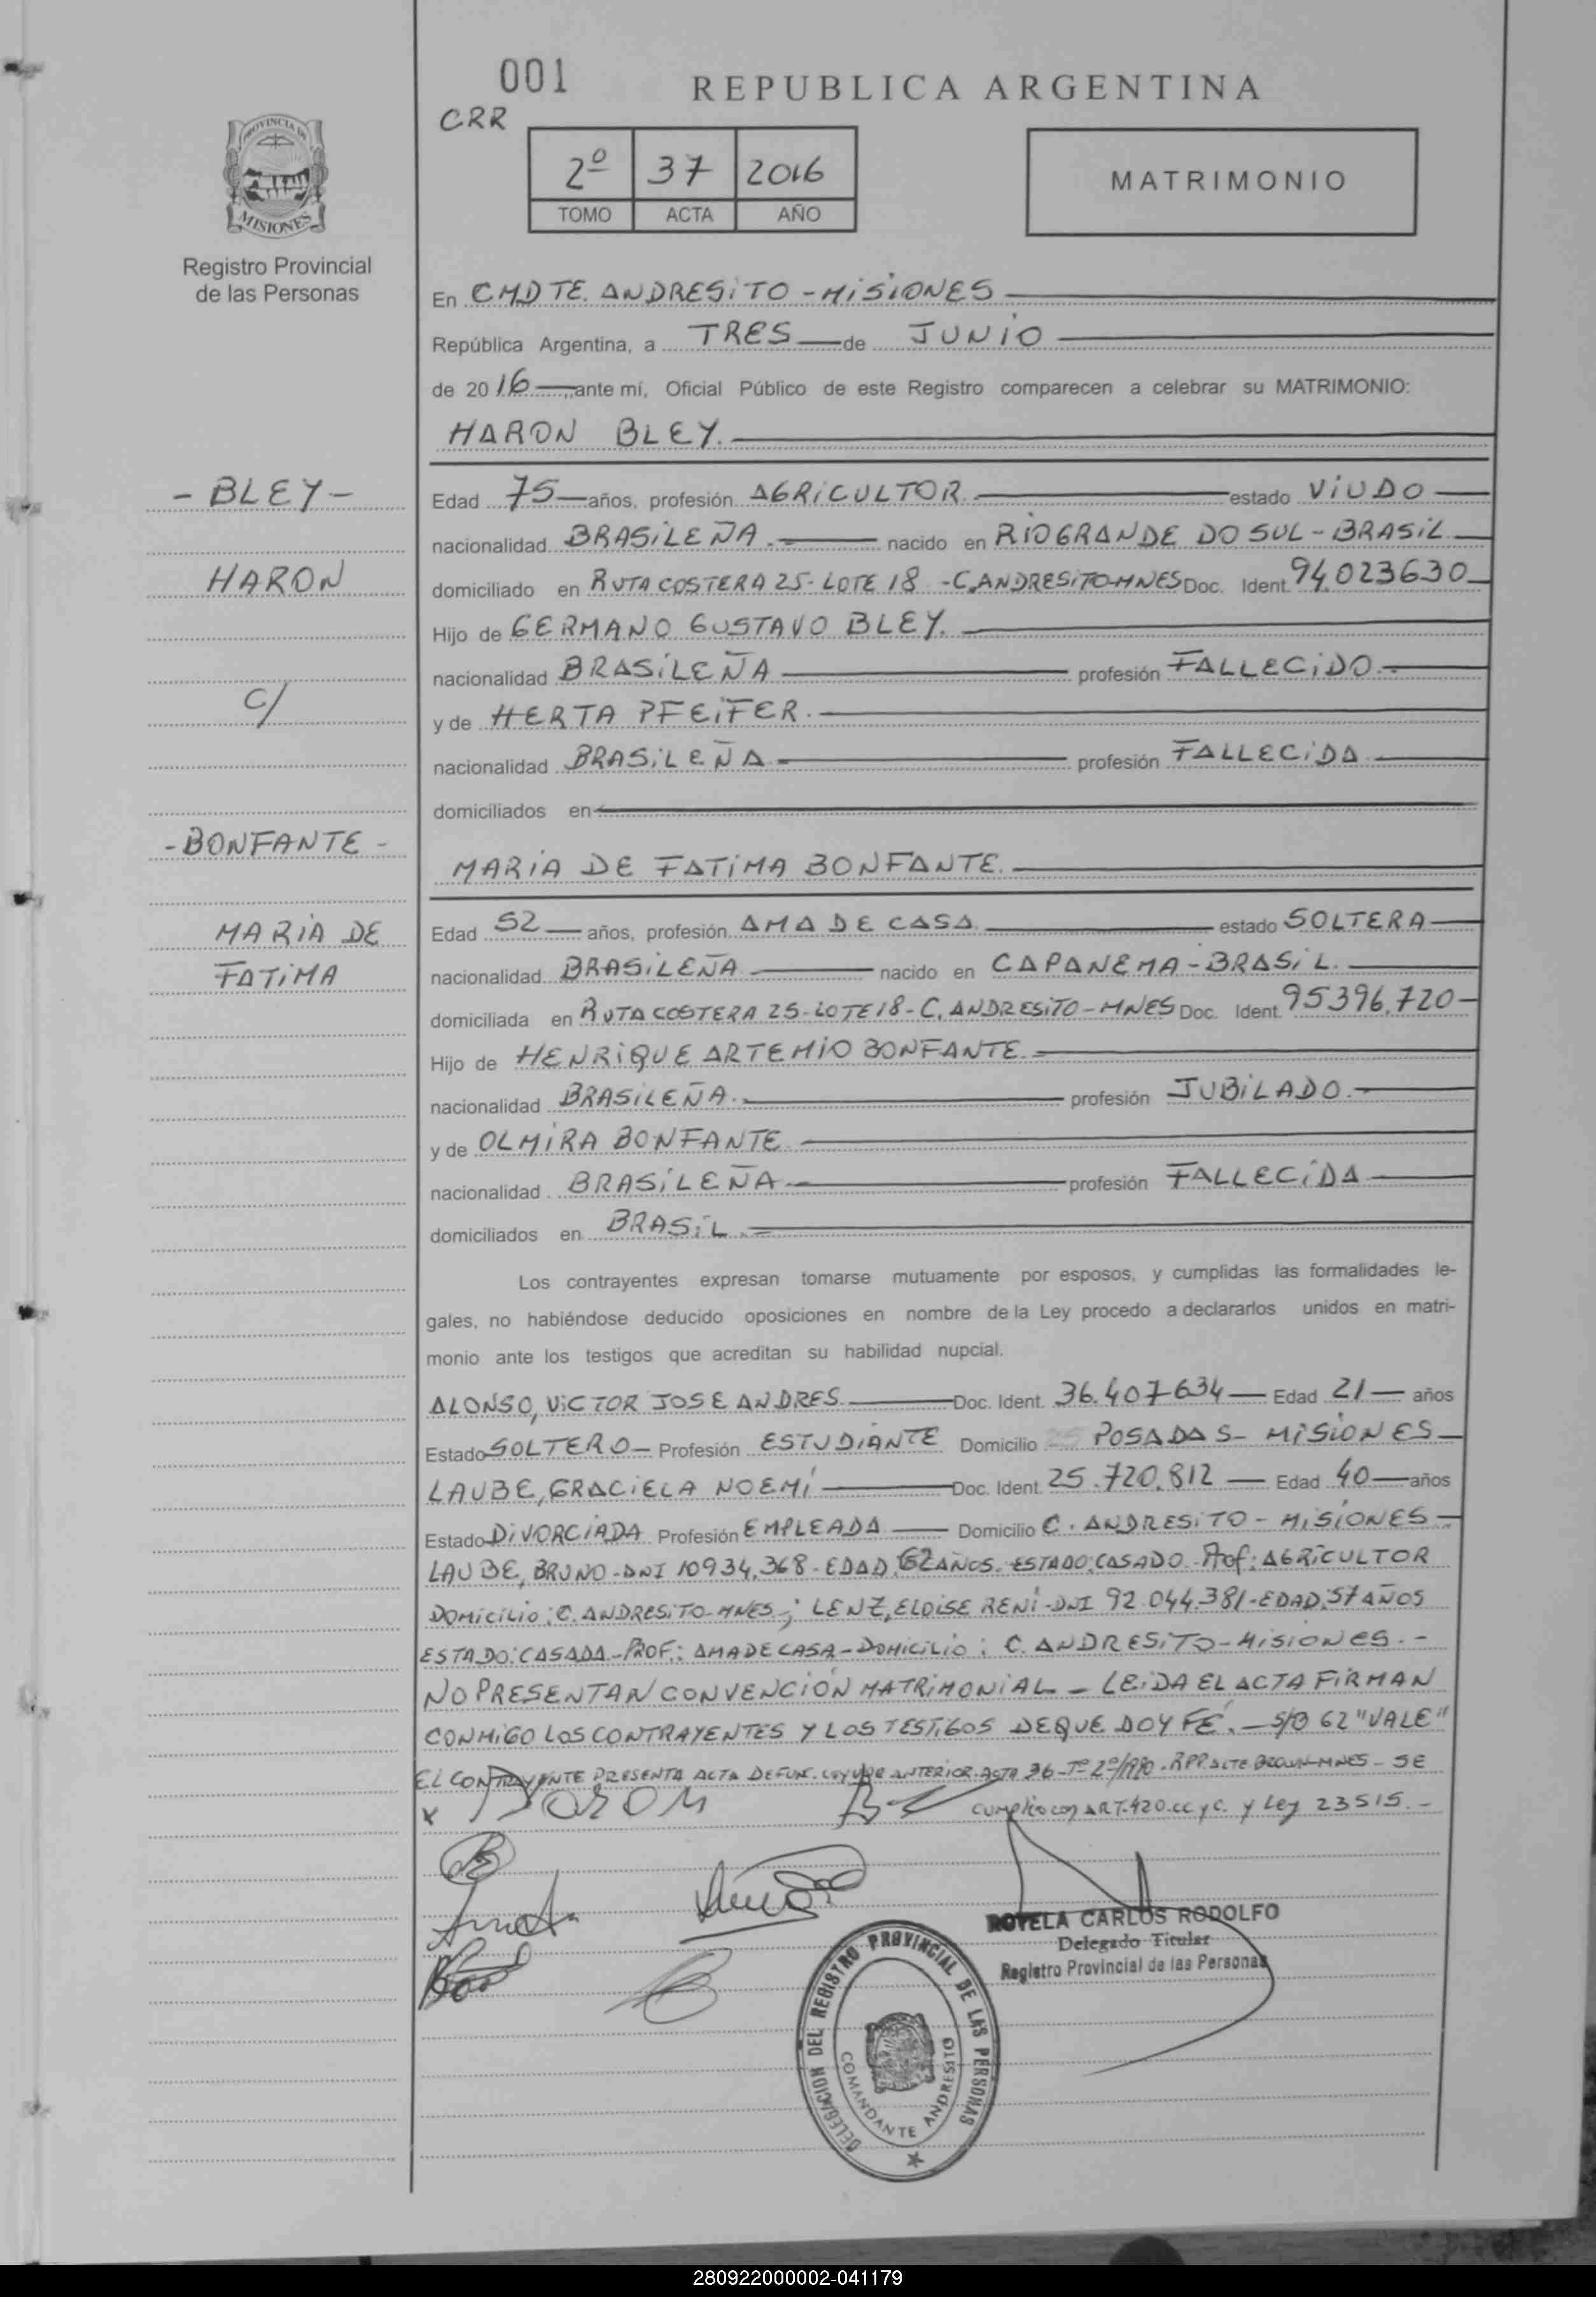 001
REPUBLICA ARGENTINA
CRR
2º 37 2016
TOMO ACTA AÑO
MATRIMONIO
PROVINCIA DE
MISIONES
Registro Provincial
de las Personas
En CMDTE. ANDRESITO - MISIONES
República Argentina, a TRES de JUNIO
de 2016 ante mí, Oficial Público de este Registro comparecen a celebrar su MATRIMONIO:
HARON BLEY.
- BLEY -
HARON
C/
- BONFANTE -
MARIA DE
FATIMA
Edad 75 años, profesión AGRICULTOR. estado VIUDO
nacionalidad BRASILEÑA. nacido en RIO GRANDE DO SUL - BRASIL
domiciliado en RUTA COSTERA 25 - LOTE 18 - C. ANDRESITO-MNES Doc. Ident. 94.023630
Hijo de GERMANO GUSTAVO BLEY.
nacionalidad BRASILEÑA profesión FALLECIDO.-
y de HERTA PFEIFER.
nacionalidad BRASILEÑA profesión FALLECIDA
domiciliados en
MARIA DE FATIMA BONFANTE.
Edad 52 años, profesión AMA DE CASA. estado SOLTERA
nacionalidad BRASILEÑA nacido en CAPANEMA - BRASIL.
domiciliada en RUTA COSTERA 25 - LOTE 18 - C. ANDRESITO - MNES Doc. Ident. 95396.720
Hijo de HENRIQUE ARTEMIO BONFANTE.
nacionalidad BRASILEÑA. profesión JUBILADO.-
y de OLMIRA BONFANTE
nacionalidad BRASILEÑA. profesión FALLECIDA
domiciliados en BRASIL.
Los contrayentes expresan tomarse mutuamente por esposos, y cumplidas las formalidades le-
gales, no habiéndose deducido oposiciones en nombre de la Ley procedo a declararlos unidos en matri-
monio ante los testigos que acreditan su habilidad nupcial.
ALONSO, VICTOR JOSE ANDRES. Doc. Ident. 36.407634 Edad 21 años
Estado SOLTERO Profesión ESTUDIANTE Domicilio POSADAS - MISIONES
LAUBE, GRACIELA NOEMÍ Doc. Ident. 25.720.812 Edad 40 años
Estado DIVORCIADA Profesión EMPLEADA Domicilio C. ANDRESITO - MISIONES
LAUBE, BRUNO - DNI 10934.368 - EDAD 62 AÑOS. ESTADO: CASADO - Prof: AGRICULTOR
DOMICILIO: C. ANDRESITO - MNES -; LENZ, ELOISE RENI - DNI 92.044.381 - EDAD: 57 AÑOS
ESTADO: CASADA - PROF.: AMA DE CASA - DOMICILIO: C. ANDRESITO - MISIONES. -
NO PRESENTAN CONVENCIÓN MATRIMONIAL - LEIDA EL ACTA FIRMAN
CONMIGO LOS CONTRAYENTES Y LOS TESTIGOS DE QUE DOY FÉ. - S/B 62 "VALE"
EL CONTRAYENTE PRESENTA ACTA DEFUN. ANTERIOR. ACTA 36 - Tº 2º/1980 - RPP. ALTE BROWN - MNES - SE
CUMPLIO CON ART. 420. CC y C. y Ley 23515. -
x
ROTELA CARLOS RODOLFO
Delegado Titular
Registro Provincial de las Personas
DELEGACION DEL REGISTRO PROVINCIAL DE LAS PERSONAS
COMANDANTE ANDRESITO
280922000002-041179